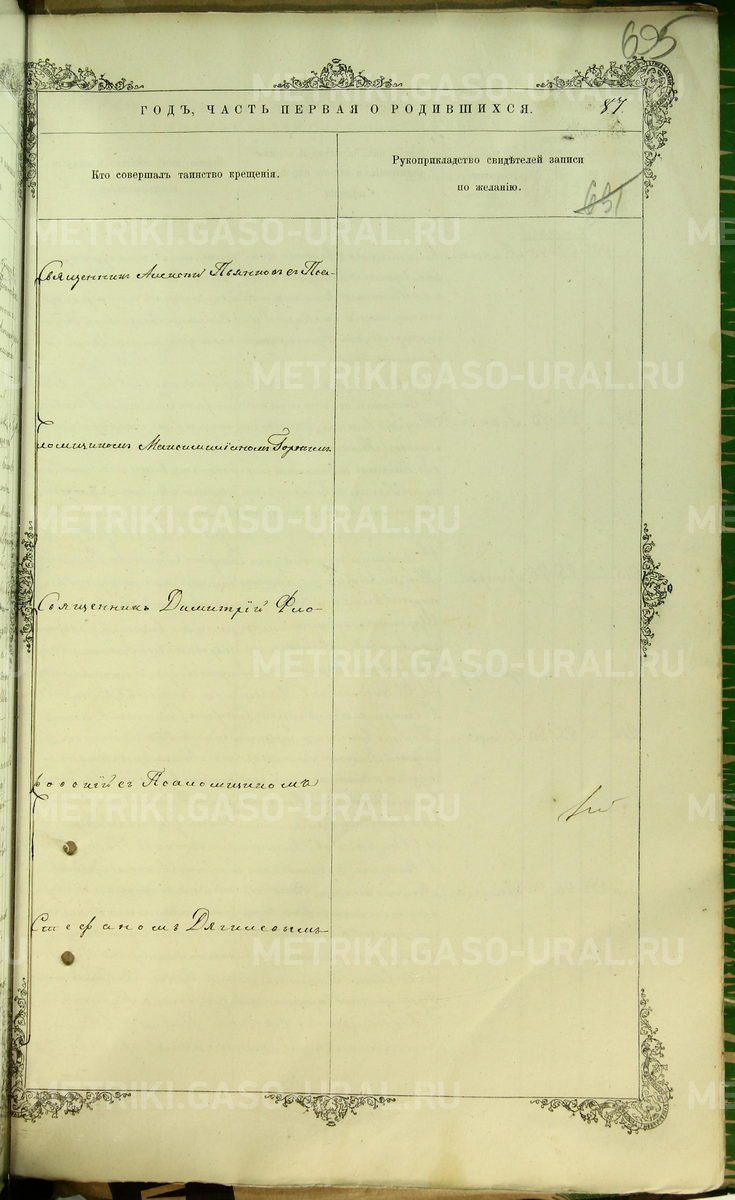 695
ГОДЪ, ЧАСТЬ ПЕРВАЯ О РОДИВШИХСЯ.
87
Кто совершалъ таинство крещенія.
Рукоприкладство свидѣтелей записи
по желанію.
651
METRIKI.GASO-URAL.RU
Священникъ Алексѣй Пьянковъ съ Пса-
ломщикомъ Максимиліаномъ
Священникъ Димитрій Фло-
ровскій съ Псаломщикомъ
Стефаномъ Дягилевымъ